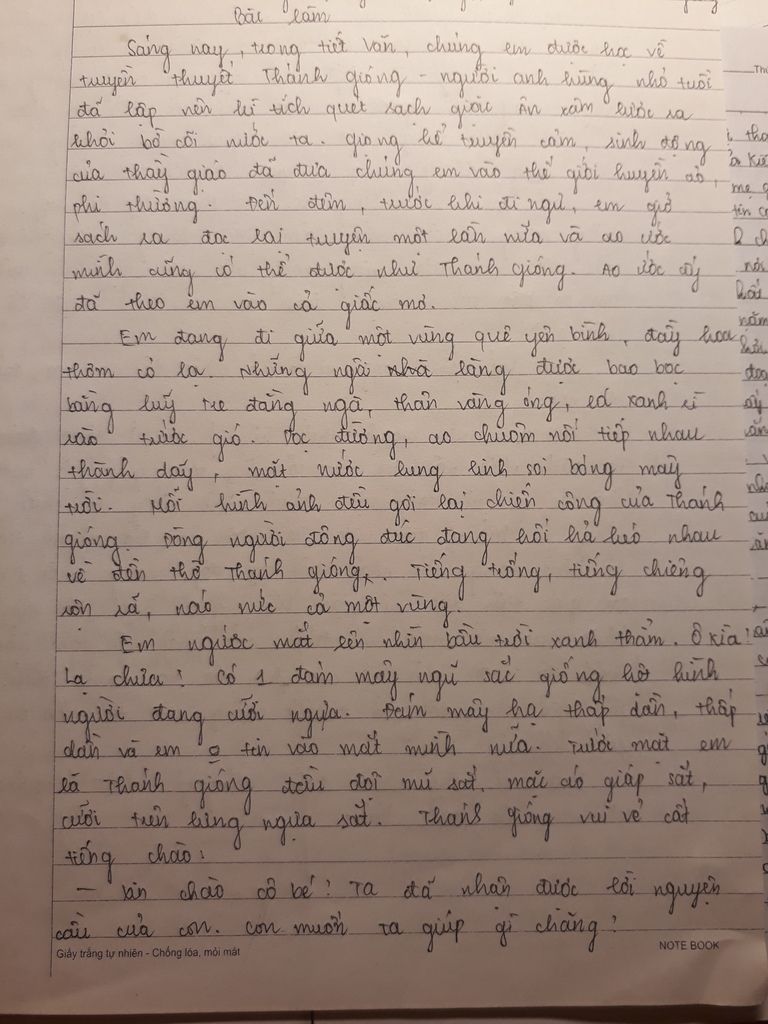 Bắc lắm
Sáng nay, trong tiết văn, chúng em được học về
truyền thuyết Thánh gióng - người anh hùng nhỏ tuổi
đã lập nên kì tích quét sạch giặc Ân xâm lược ra
khỏi bờ cõi nước ta. giọng kể truyền cảm, sinh động
của thầy giáo đã đưa chúng em vào thế giới huyền ảo,
phi thường. Đến đêm, trước khi đi ngủ, em giở
sách ra đọc lại truyện một lần nữa và ao ước
mình cũng có thể được như Thánh gióng. Ao ước ấy
đã theo em vào cả giấc mơ.
Em đang đi giữa một vùng quê yên bình, đầy hoa
thơm cỏ lạ. Những ngôi nhà làng được bao bọc
bằng luỹ tre đằng ngà, thân vàng óng, lá xanh rì
rào trước gió. Dọc đường, ao chuôm nối tiếp nhau
thành dãy, mặt nước lung linh soi bóng mây
trời. Mỗi hình ảnh đều gợi lại chiến công của Thánh
gióng. Dòng người đông đúc đang hối hả kéo nhau
về đền thờ Thánh gióng. Tiếng trống, tiếng chiêng
rộn rã, náo nức cả một vùng.
Em ngước mắt lên nhìn bầu trời xanh thẳm. Ô kìa!
Lạ chưa! Có 1 đám mây ngũ sắc giống hệt hình
người đang cưỡi ngựa. Đám mây hạ thấp dần, thấp
dần và em o tin vào mắt mình nữa. Trước mắt em
là Thánh gióng đầu đội mũ sắt, mặc áo giáp sắt,
cưỡi trên lưng ngựa sắt. Thánh gióng vui vẻ cất
tiếng chào:
- Xin chào cô bé! Ta đã nhận được lời nguyện
cầu của con. Con muốn ta giúp gì chăng?
Giấy trắng tự nhiên - Chống lóa, mỏi mắt
NOTE BOOK